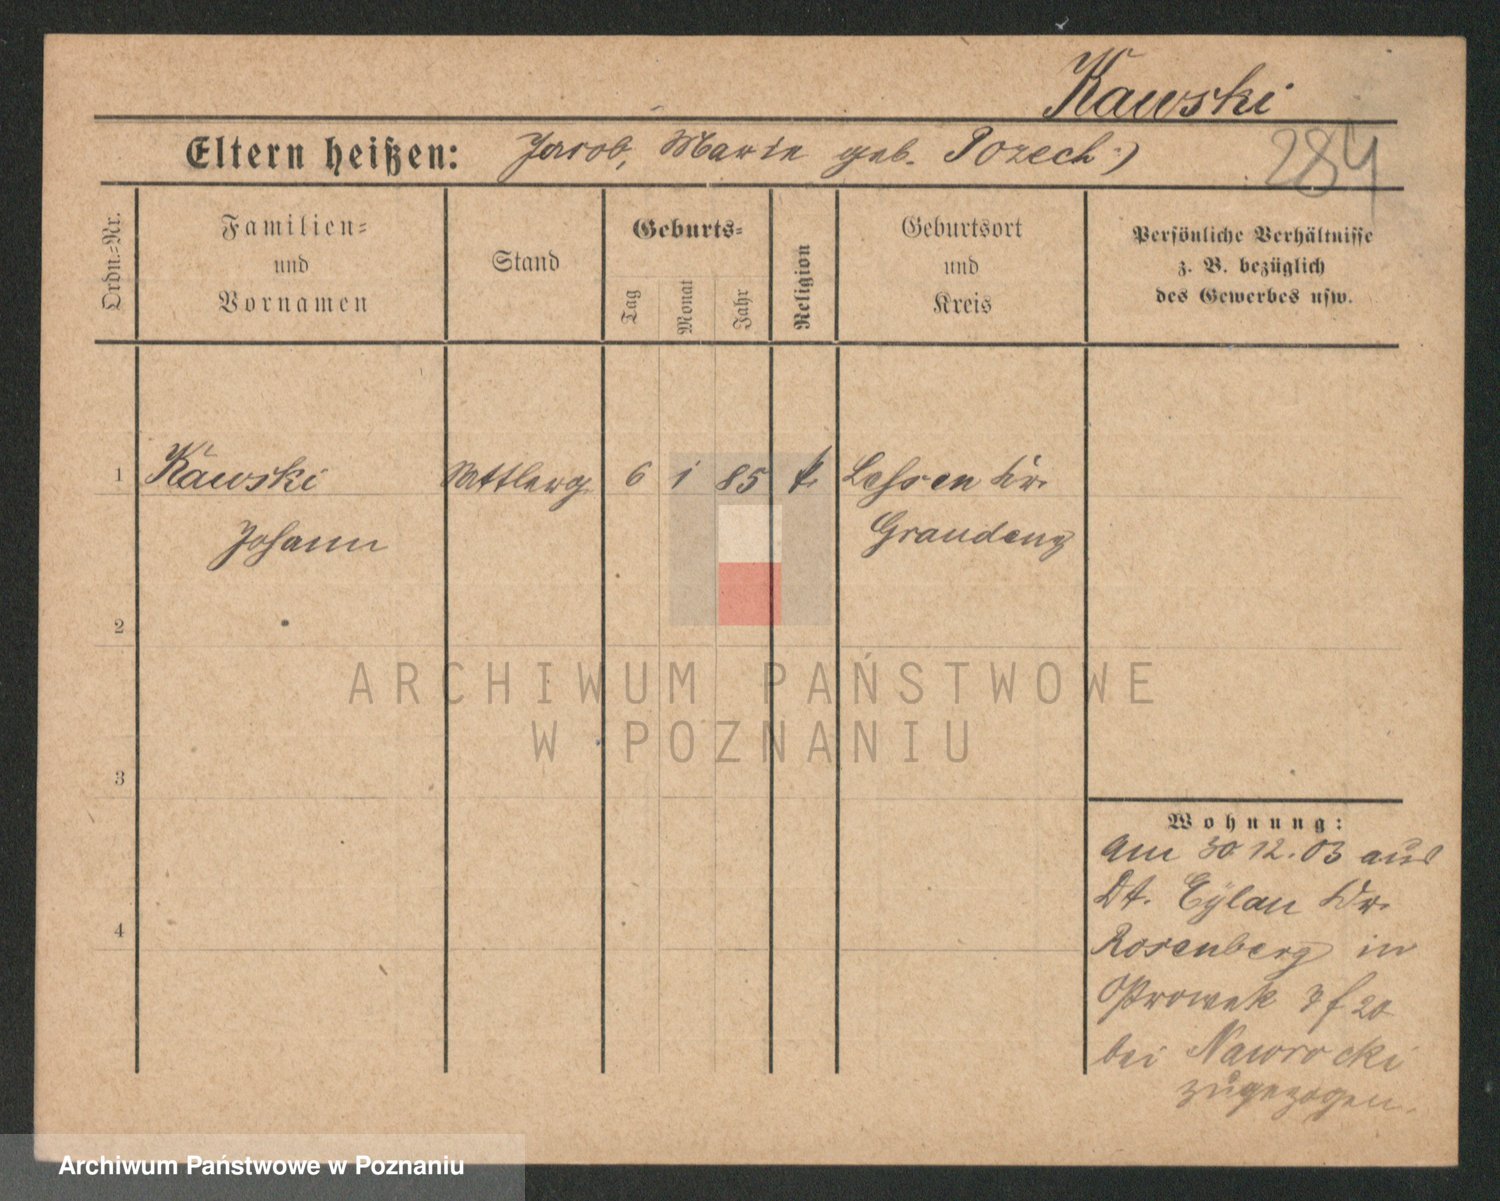 Kawski
284
Eltern heißen: Jacob, Marie geb. Pozech :)
Ordn.=Nr.
Familien=
und
Vornamen
Stand
Geburts=
Tag
Monat
Jahr
Religion
Geburtsort
und
Kreis
Persönliche Verhältnisse
z. B. bezüglich
des Gewerbes usw.
1 Kawski 6 1 85 k. Kr.
Johann Graudenz
2
ARCHIWUM PAŃSTWOWE
W POZNANIU
3
Wohnung:
Am 30 12. 03 aus
Dt. Eylau Kr.
4
Rosenberg in
Ostrowek 20
bei Nawrocki
zugezogen.
Archiwum Państwowe w Poznaniu